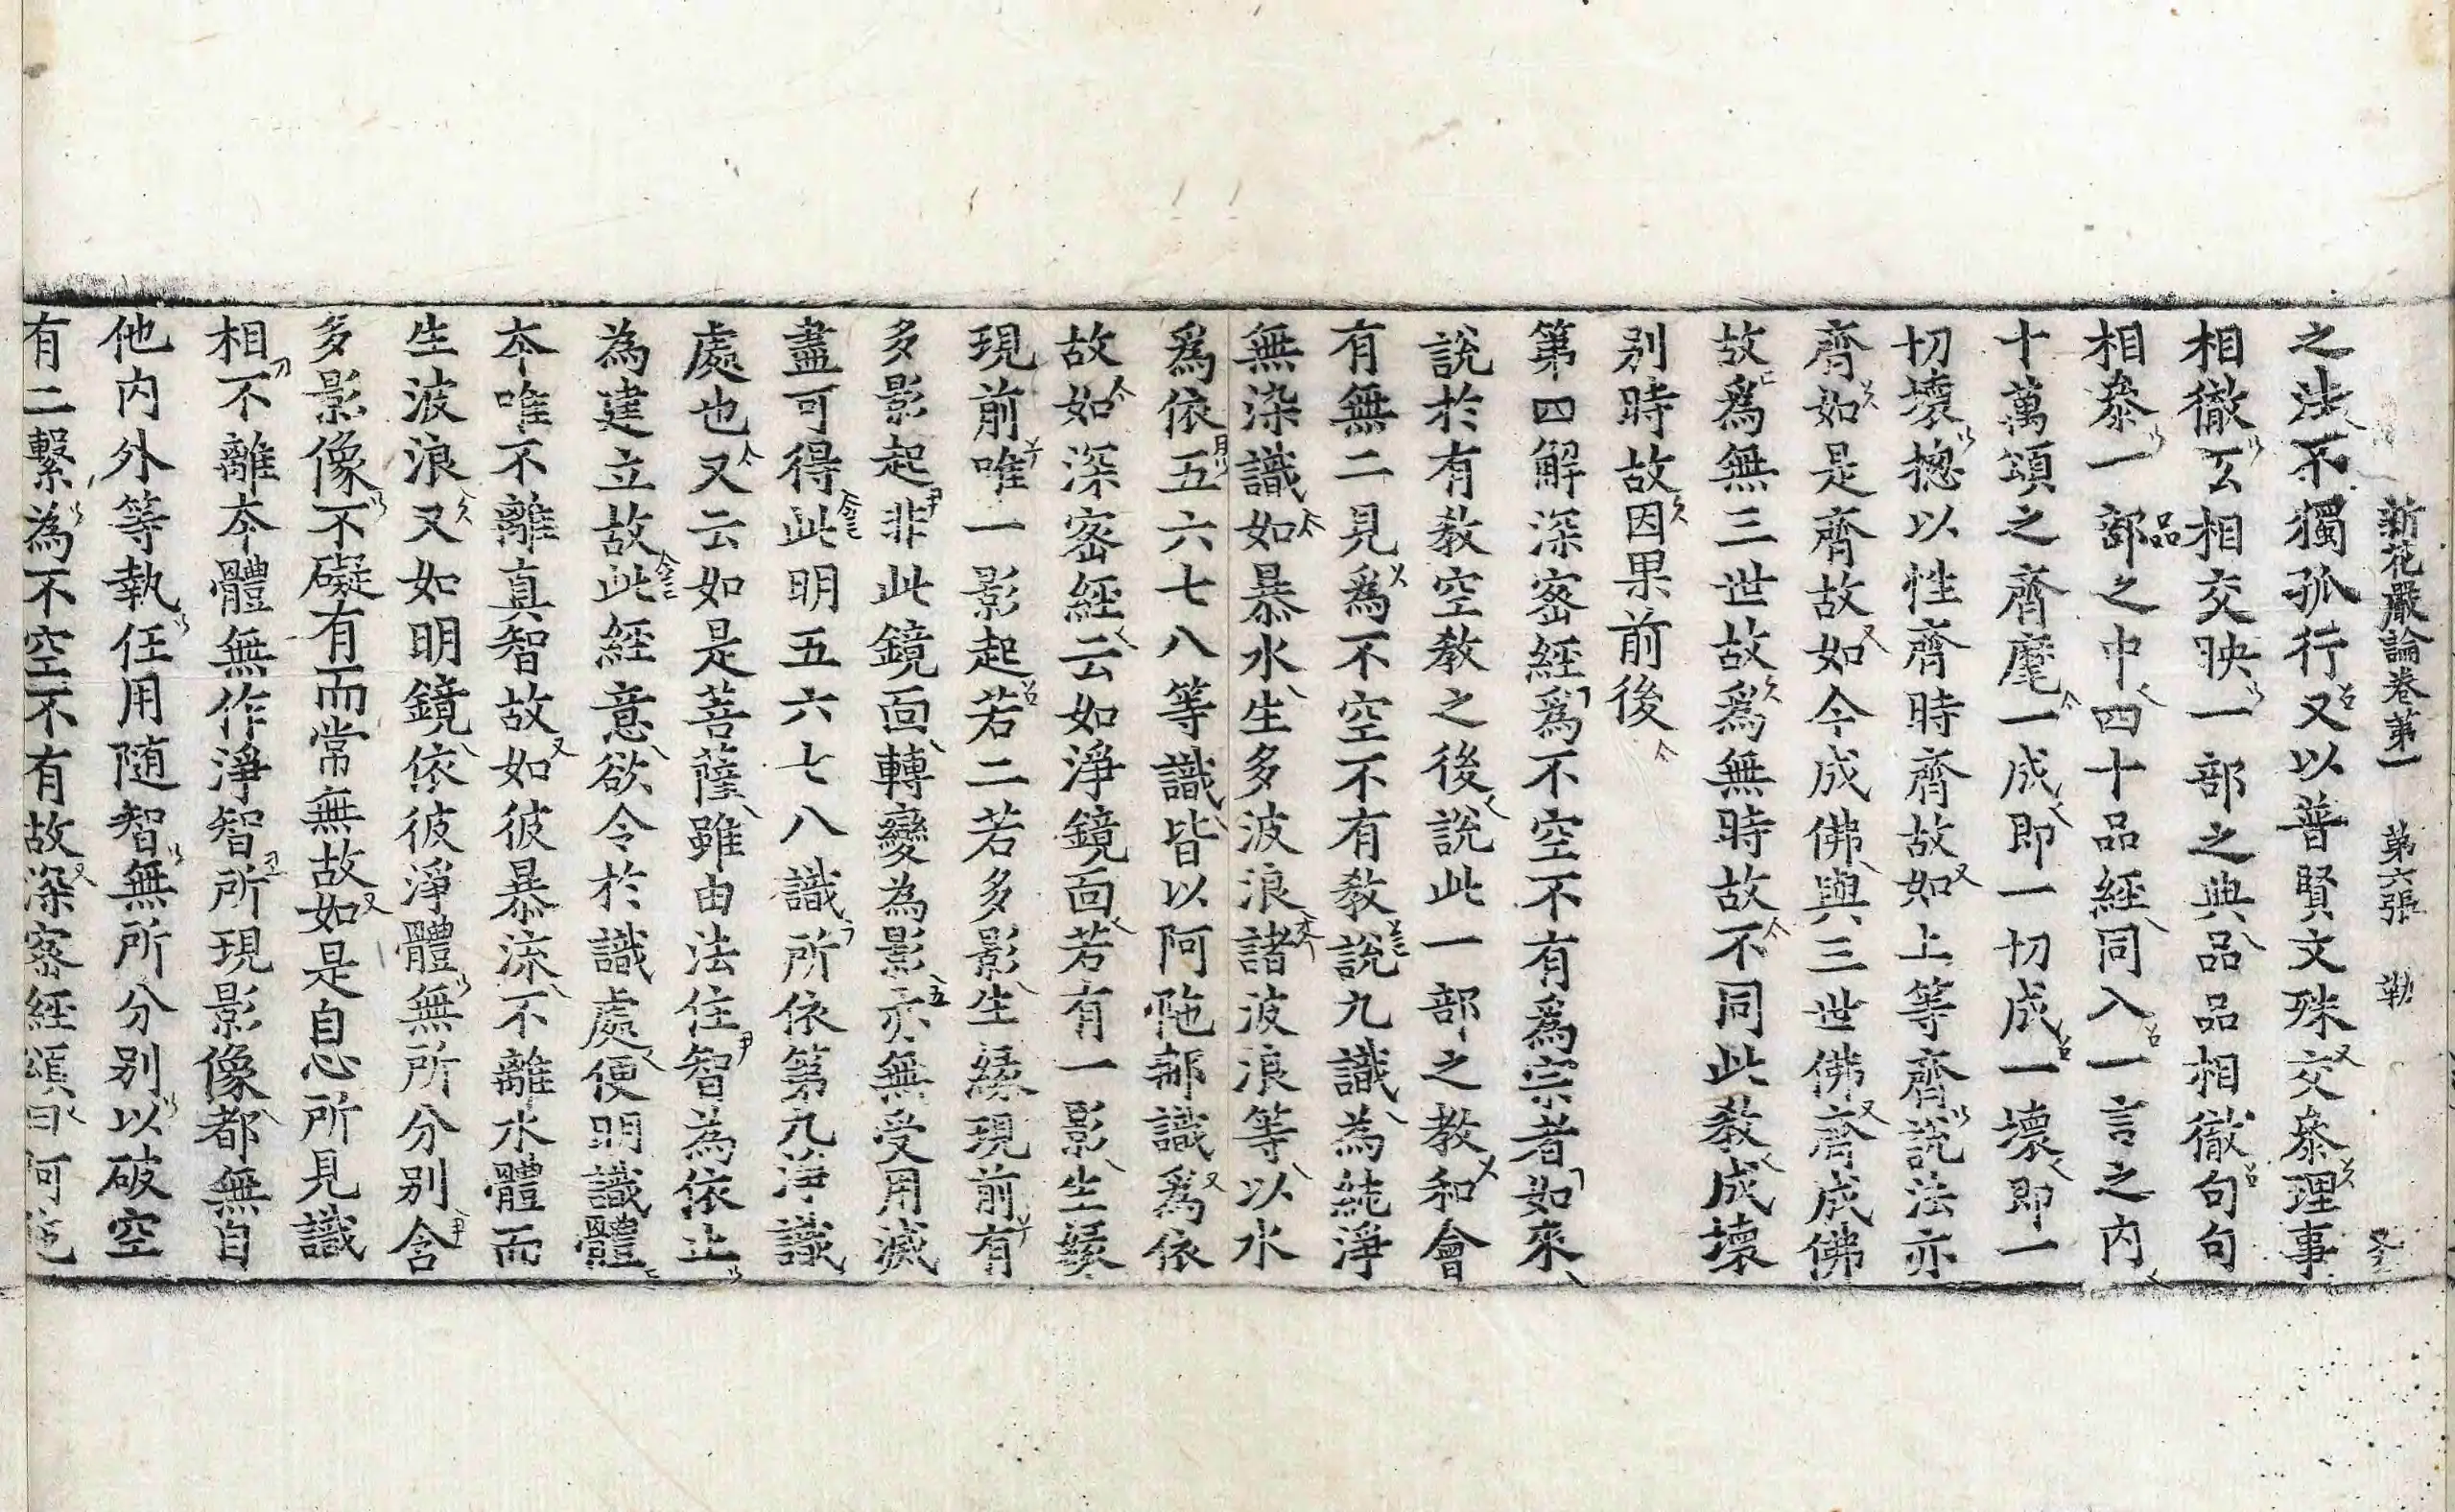 新花嚴論卷第一 第六張 勒
之法不獨孤行又以普賢文殊交叅理事
相徹玄相交映一部之典品品相徹句句
相叅一部品之中四十品經同入一言之内
十萬頌之齊麾一成即一切成一壞即一
切壞摠以性齊時齊故如上等齊說法亦
齊如是齊故如今成佛與三世佛齊成佛
故爲無三世故爲無時故不同此教成壞
别時故因果前後
第四解深宻經爲不空不有爲宗者如來
說於有教空教之後說此一部之教和會
有無二見爲不空不有教說九識為純淨
無染識如暴水生多波浪諸波浪等以水
爲依五六七八等識皆以阿陁那識爲依
故如深宻經云如淨鏡面若有一影生緣
現前唯一影起若二若多影生緣現前有
多影起非此鏡面轉變為影亦無受用滅
盡可得此明五六七八識所依第九淨識
處也又云如是菩薩雖由法住智為依止
為建立故此經意欲令於識處便明識體
夲唯不離真智故如彼暴流不離水體而
生波浪又如明鏡依彼淨體無所分别含
多影像不礙有而常無故如是自心所見識
相不離夲體無作淨智所現影像都無自
他内外等執任用随智無所分别以破空
有二繫為不空不有故深宻經頌曰阿陁